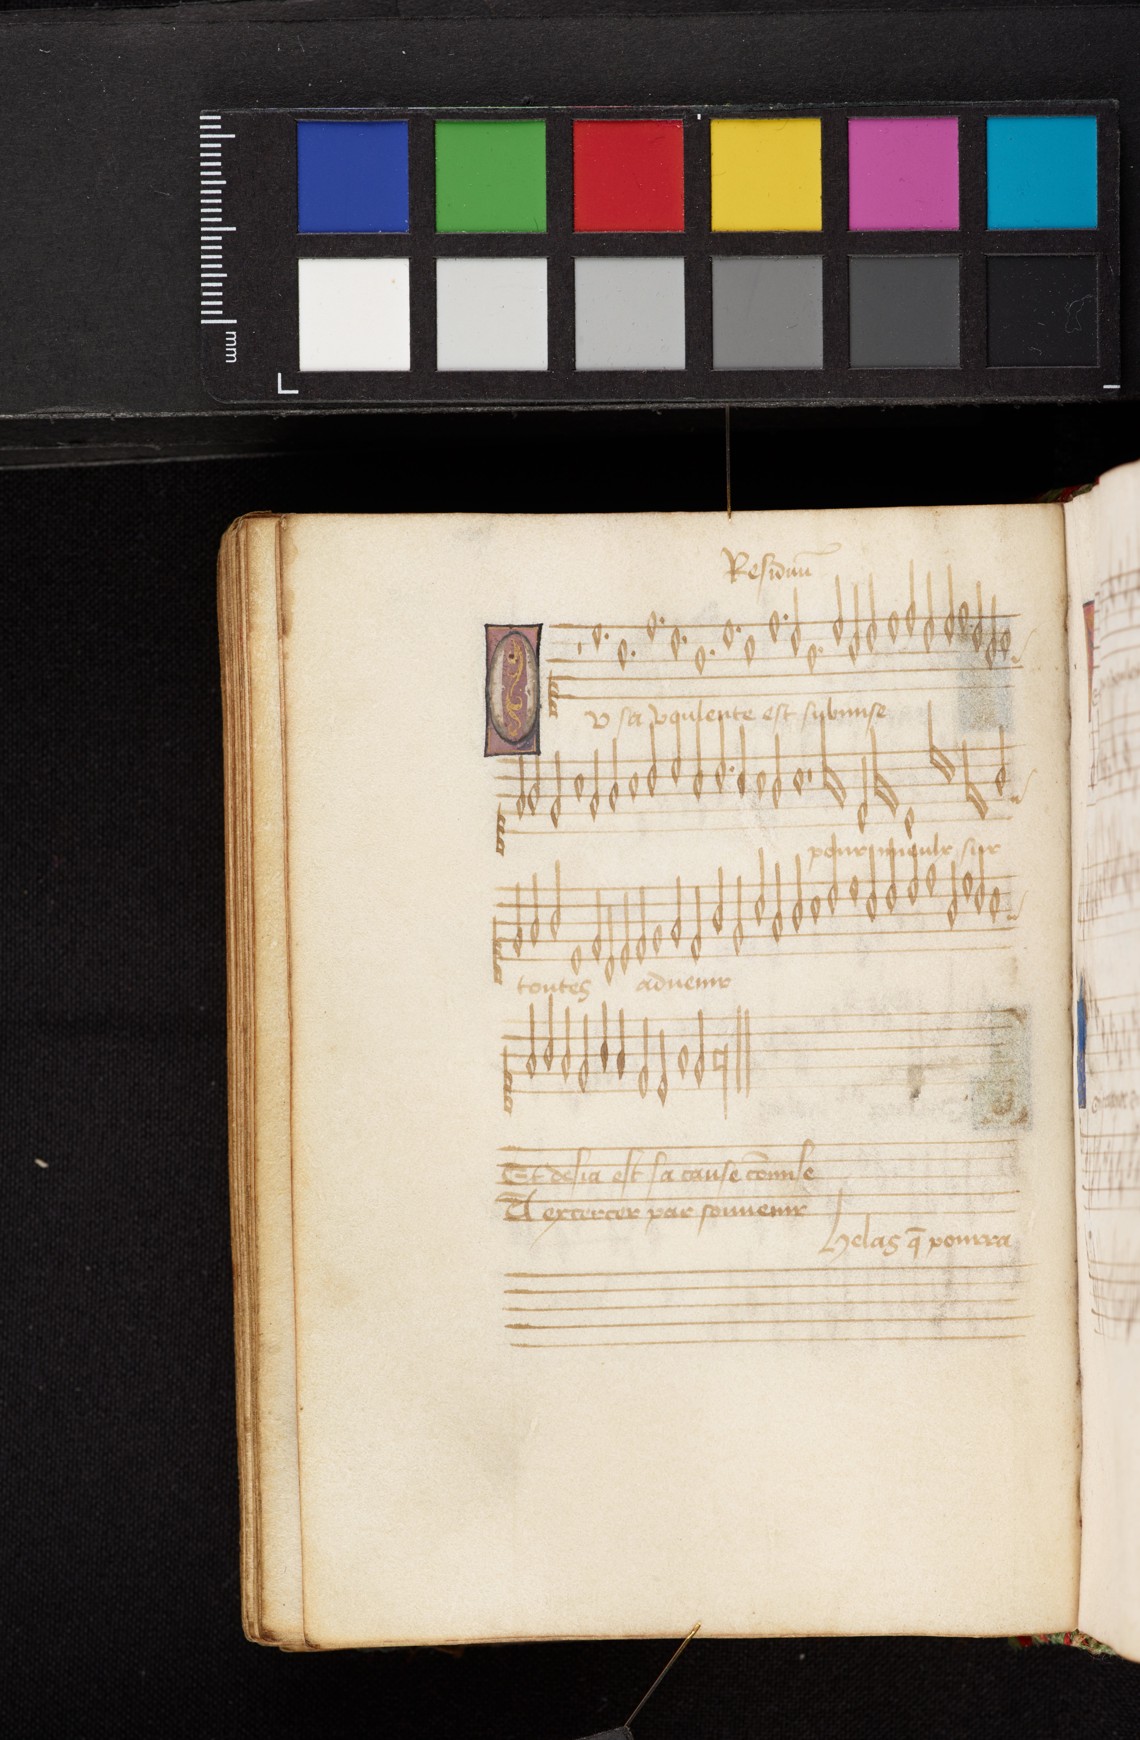 mm
Residuũ
O
v sa voulente est submise
pour mieulx sur
toutes advenir
Et desia est sa cause cõmise
A excercer par souvenir
helas q̃ pourra